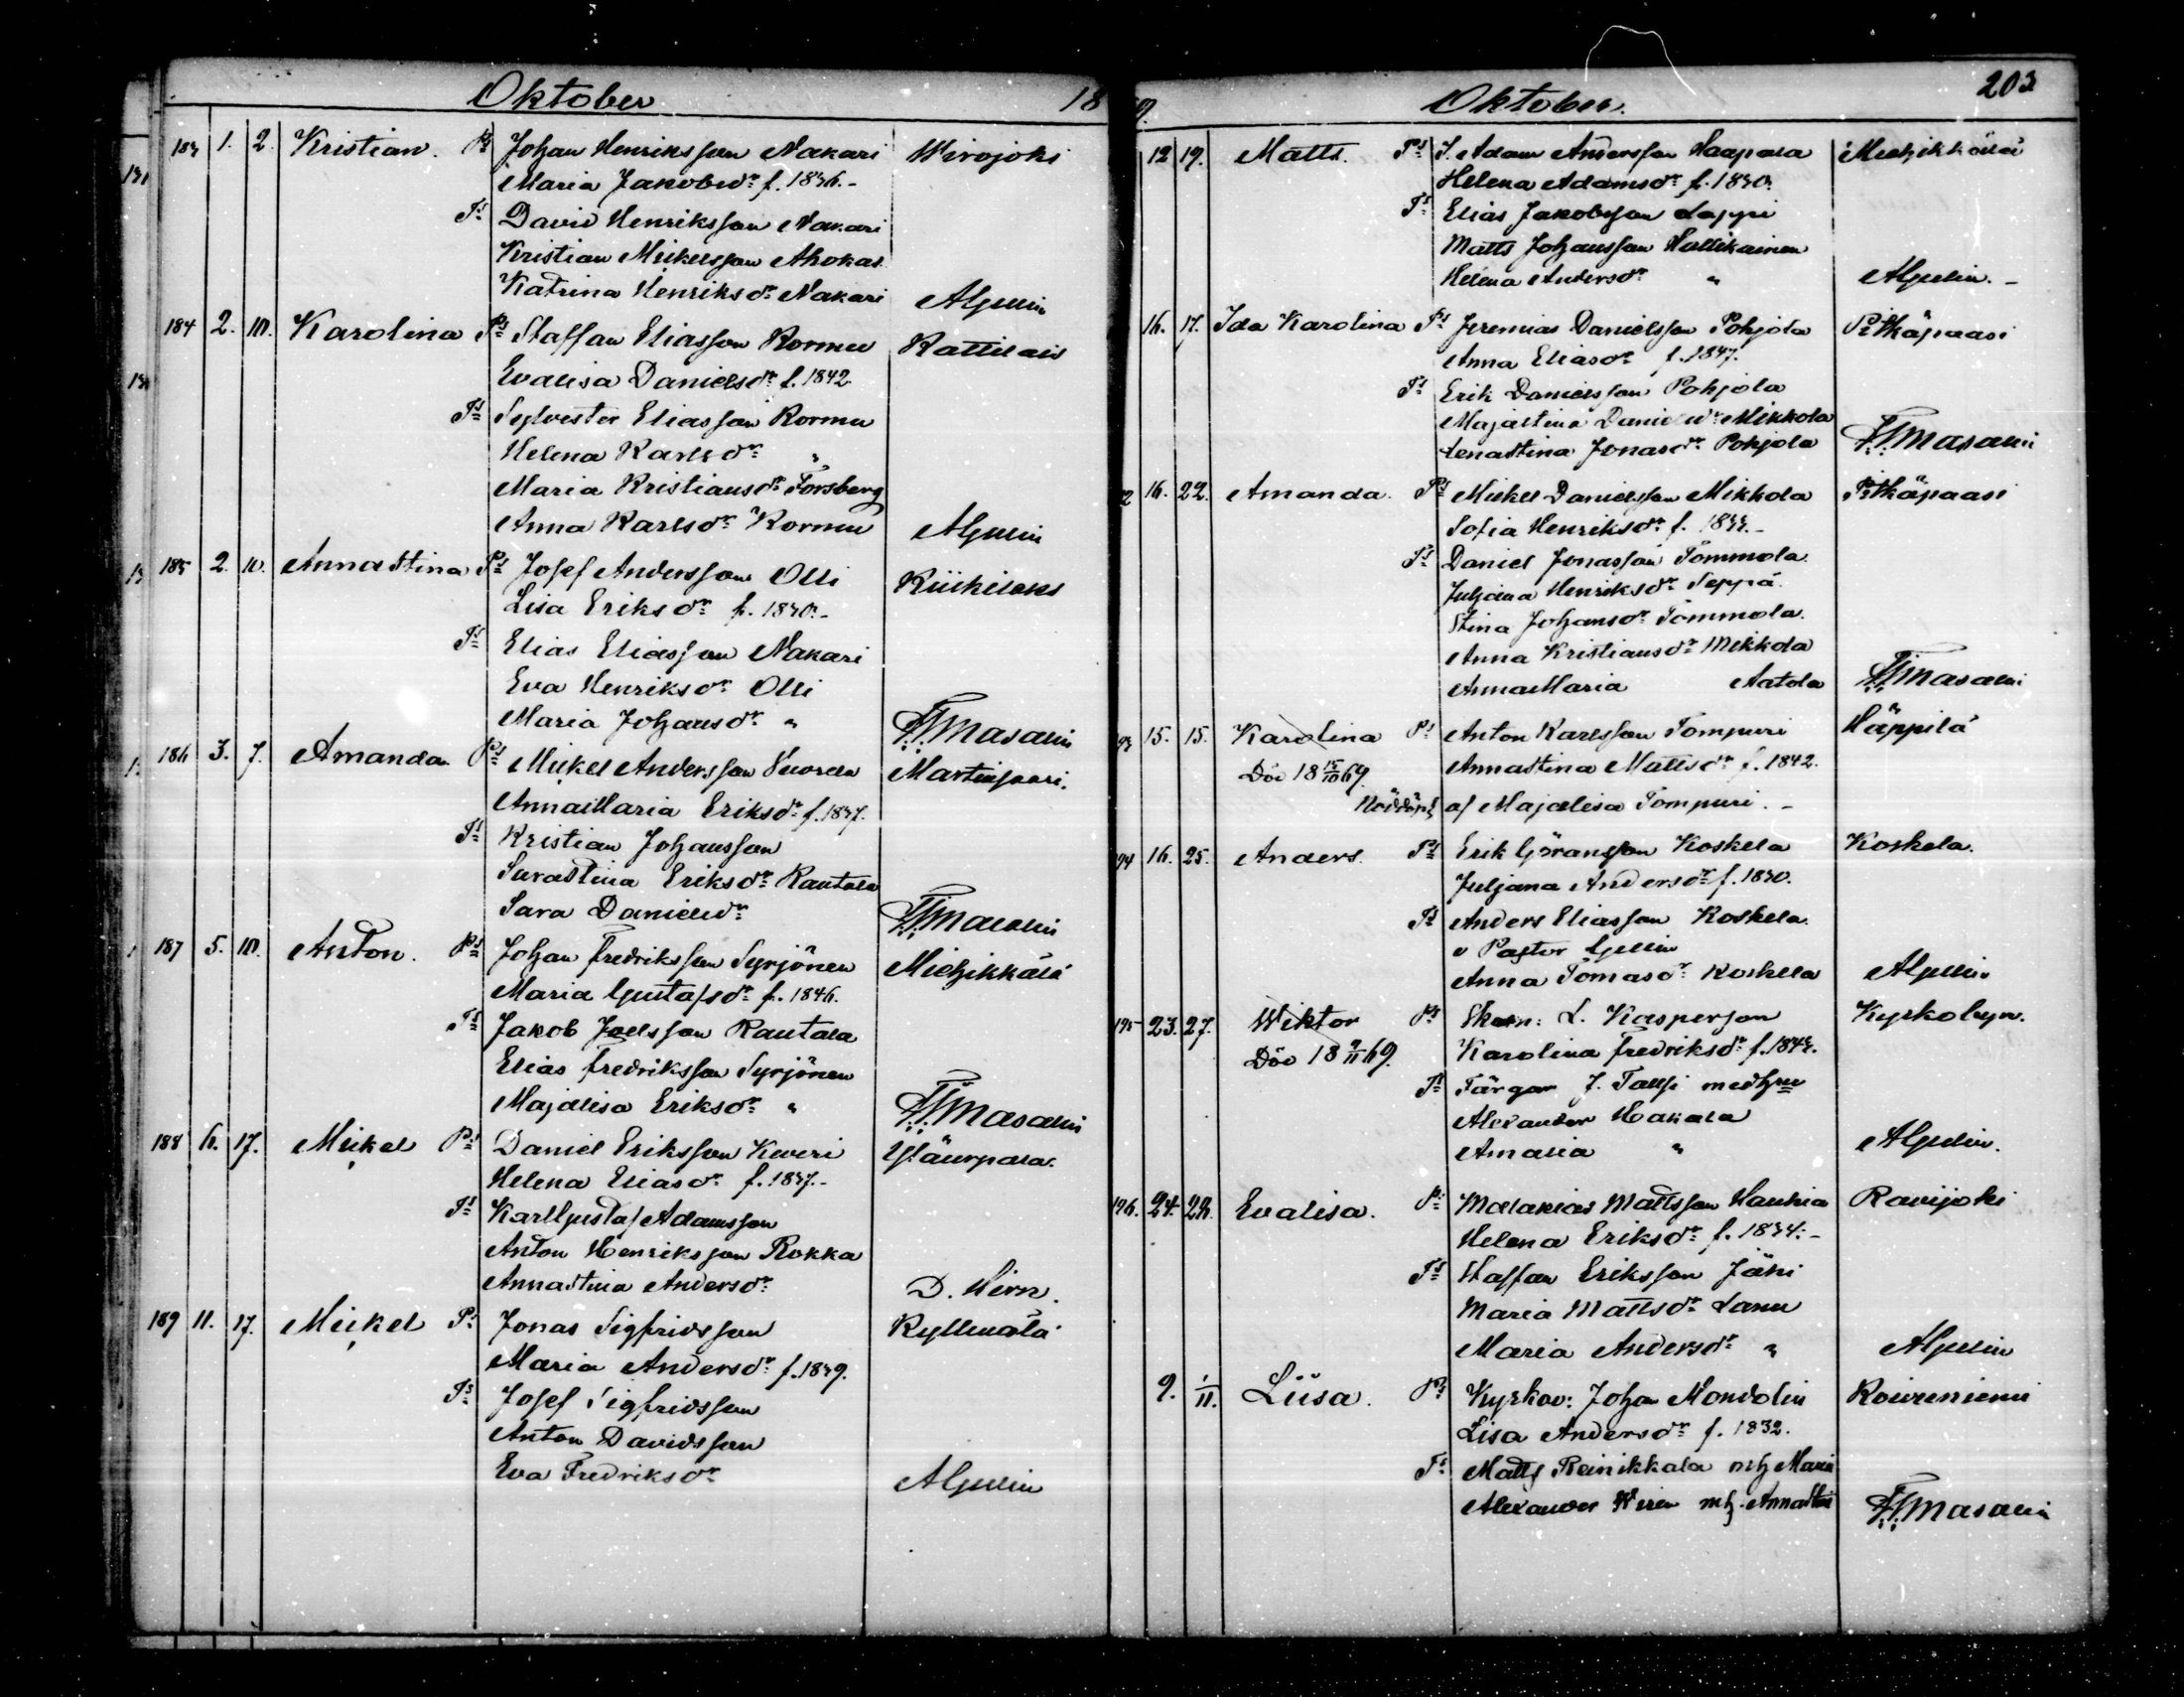 Oktober 18
183 1. 2. Kristian. Ps Johan Henriksson Nakari Wirojoki
Maria Jakobsdr f. 1836.-
Ts David Henriksson Nakari
Kristian Mickelsson Ahokas
Katrina Henriksdr Nakari AGulin
184 2. 10. Karolina Ps Staffan Eliasson Kormu Kattilais
Evalisa Danielsdr f. 1842.
Ts Sylvester Eliasson Kormu
Helena Karlsdr "
Maria Kristiansdr Forsberg
Anna Karlsdr Kormu AGulin
185 2. 10. Annastina Ps Josef Andersson Olli
Lisa Eriksdr f. 1830.-
Ts Elias Eliasson Nakari
Eva Henriksdr Olli
Maria Johansdr " Masalin
186 3. 7. Amanda Ps Mickel Andersson Vuorela Martinsaari.
AnnaMaria Eriksdr f. 1837.
Ts Kristian Johansson
Sarastina Eriksdr Rautala
Sara Danielsdr Masalin
187 5. 10. Anton. Ps Johan Fredriksson Syrjönen Miehikkälä
Maria Gustafsdr f. 1846.
Ts Jakob Joelsson Rautala
Elias Fredriksson Syrjönen
Majalisa Eriksdr " Masalin
188 6. 17. Mickel Ps Daniel Eriksson Kuori Yläurpala.
Helena Eliasdr f. 1837.-
Ts KarlGustaf Adamsson
Anton Henriksson Rokka
Annastina Andersdr D. Hirn.
189 11. 17. Mickel Ps Jonas Sigfridsson Kyllmälä
Maria Andersdr f. 1839.
Ts Josef Sigfridsson
Anton Davidsson
Eva Fredriksdr AGulin
9. Oktober. 203
12 19. Matts. Ps J. Adam Andersson Haapala Miehikkälä
Helena Adamsdr f. 1830.
Ts Elias Jakobsson Lappi
Matts Johansson Hallikainen
Helena Andersdr " AGulin.-
16. 17. Ida Karolina Ps Jeremias Danielsson Pohjola Pitkäpaasi
Anna Eliasdr f. 1847.
Ts Erik Danielsson Pohjola
Majastina Danielsdr Mikkola
Lenastina Jonasdr Pohjola Masalin
2 16. 22. Amanda. Ps Mickel Danielsson Mikkola Pitkäpaasi
Sofia Henriksdr f. 1833.-
Ts Daniel Jonasson Tommola.
Juljana Henriksdr Seppä.
Stina Johansdr Tommola.
Anna Kristiansdr Mikkola
AnnaMaria Aatola Masalin
93 15. 15. Karolina Ps Anton Karlsson Tompuri Häppilä
Död 18 15/10 69. Annastina Mattsdr f. 1842.
Nöddöpt af Majalisa Tompuri.-
94 16. 25. Anders. Ps Erik Göransson Koskela Koskela.
Juljana Andersdr f. 1830.
Ts Anders Eliasson Koskela.
v Pastor Gulin
Anna Tomasdr Koskela AGulin
195 23. 27. Wiktor Ps Skarn: L. Kasperson Kyrkobyn.
Död 18 9/11 69. Karolina Fredriksdr f. 1843.
Ts Färgar J. Taussi med hru
Alexander Hakala
Amalia " AGulin.
196. 24. 28. Evalisa. Ps Malakias Mattsson Hauhia Ravijoki
Helena Eriksdr f. 1834.-
Ts Staffan Eriksson Jäki
Maria Mattsdr Lanu
Maria Andersdr " AGulin
9. 1/11. Liisa. Ps Kyrkov: Johan Mondolin
Lisa Andersdr f. 1832.
Ts Matts Reinikkala mh Maria
Alexander Wiren mh. Annastin Masalin